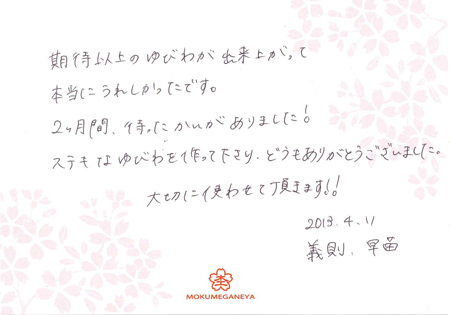 期待以上のゆびわが出来上がって
本当にうれしかったです。
2ヶ月間、待ったかいがありました!
ステキなゆびわを作って下さり、どうもありがとうございました。
大切に使わせて頂きます!!
2013.4.11
義則、早苗
MOKUMEGANEYA